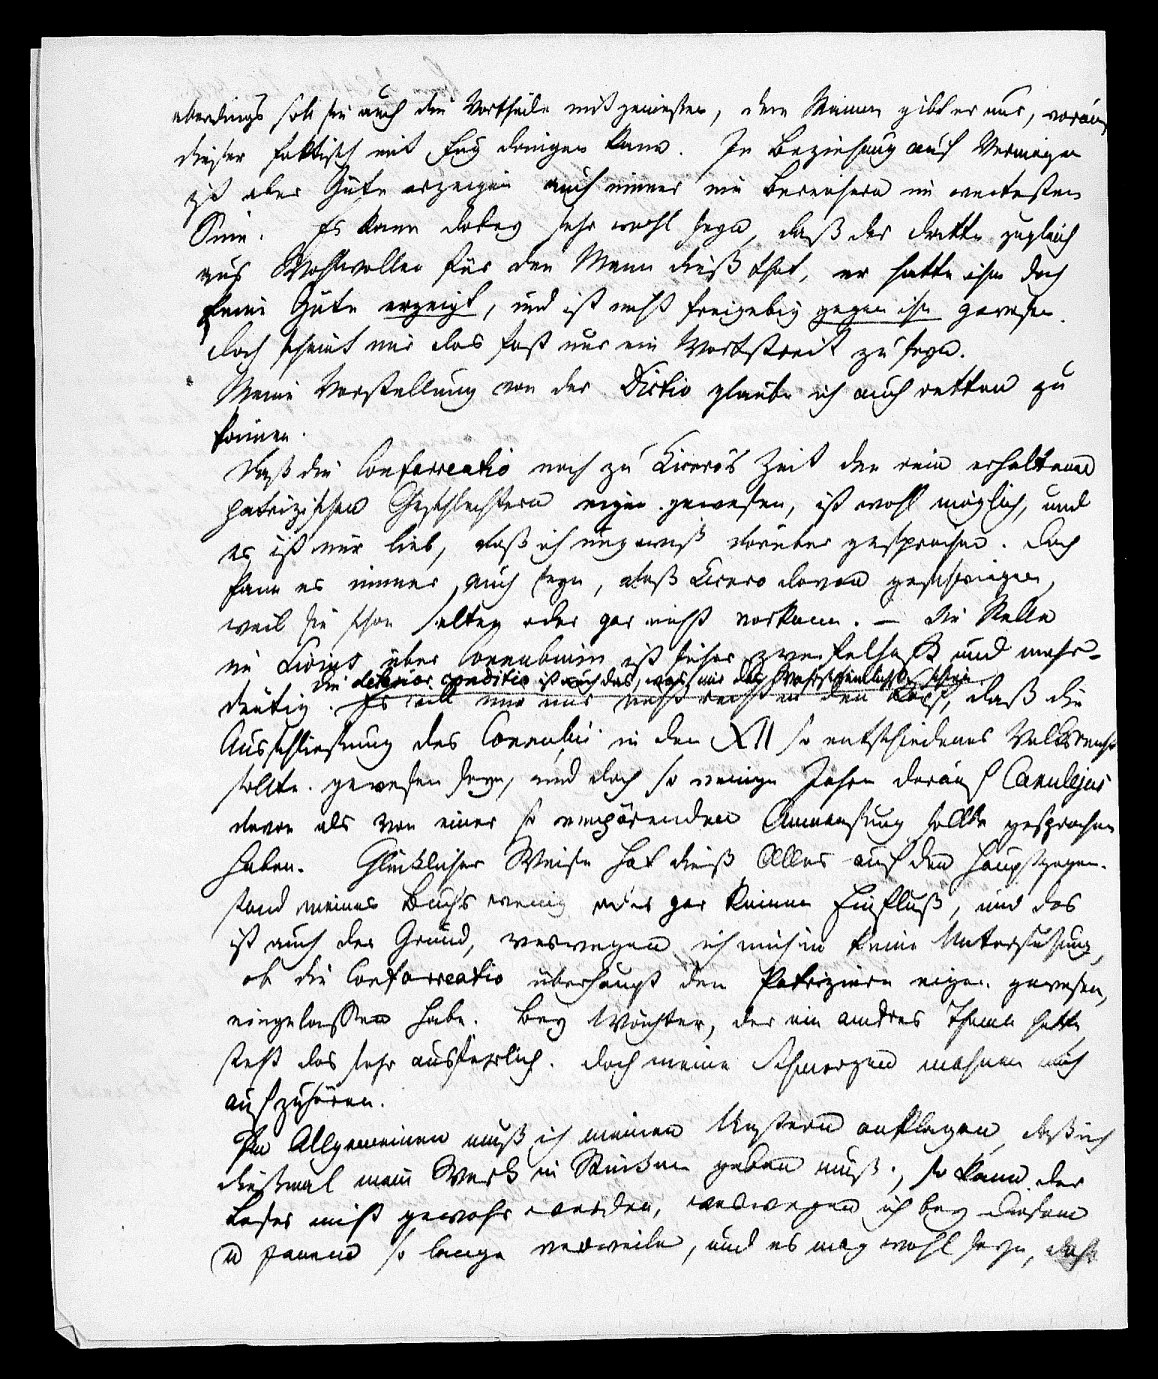 allerdings soll sie auch die Vortheile mit genießen, dem Manne gibt er nur, woraus
dieser faktisch mit Fug bringen kann. In Beziehung auf Vermögen
ist aber Güte erzeigen auch immer ein Bereichern im weitesten
Sinn. Es kann dabey sehr wohl seyn, daß der Dritte zugleich
aus Wohlwollen für den Mann dieß that, er hatte ihm doch
keine Güte erzeigt, und ist nicht freigebig gegen ihn gewesen.
Doch scheint mir das fast nur ein Wortstreit zu seyn.
Meine Vorstellung von der Dictio glaube ich auch retten zu
können.
Daß die Confarreatio noch zu Cicero's Zeit den rein erhaltenen
patrizischen Geschlechtern eigen gewesen, ist wohl möglich, und
es ist mir lieb, daß ich ungewiß darüber gesprochen. Doch
kann es immer auch seyn, daß Cicero davon geschwiegen,
weil sie schon selten oder gar nicht vorkam. – Die Stelle
im Livius über Connubium ist sicher zweifelhaft und mehr-
die deterior conditio ist auch das, was mir das Wahrscheinlichste schien
deutig. Es will mir nur nicht recht in den Kopf, daß die
Ausschließung des Connubii in den XII so entschiedenes Volksrecht
sollte gewesen seyn, und doch so wenige Jahre darauf Canulejus
davon als von einer so empörenden Anmaßung sollte gesprochen
haben. Glücklicher Weise hat dieß Alles auf den Hauptgegen-
stand meines Buchs wenig oder gar keinen Einfluß, und das
ist auch der Grund, weswegen ich mich in keine Untersuchung,
ob die Confarreatio überhaupt den Patriziern eigen gewesen,
eingelassen habe. Bey Wächter, der ein andres Thema hatte,
steht das sehr ausführlich. Doch meine Schmerzen mahnen mich
aufzuhören.
Im Allgemeinen muß ich meinen Unstern anklagen, daß ich
dießmal mein Werk in Stücken geben muß, so kann der
Leser nicht gewahr werden, weswegen ich bey diesem
u jenem so lange verweile, und es mag wohl seyn, daß